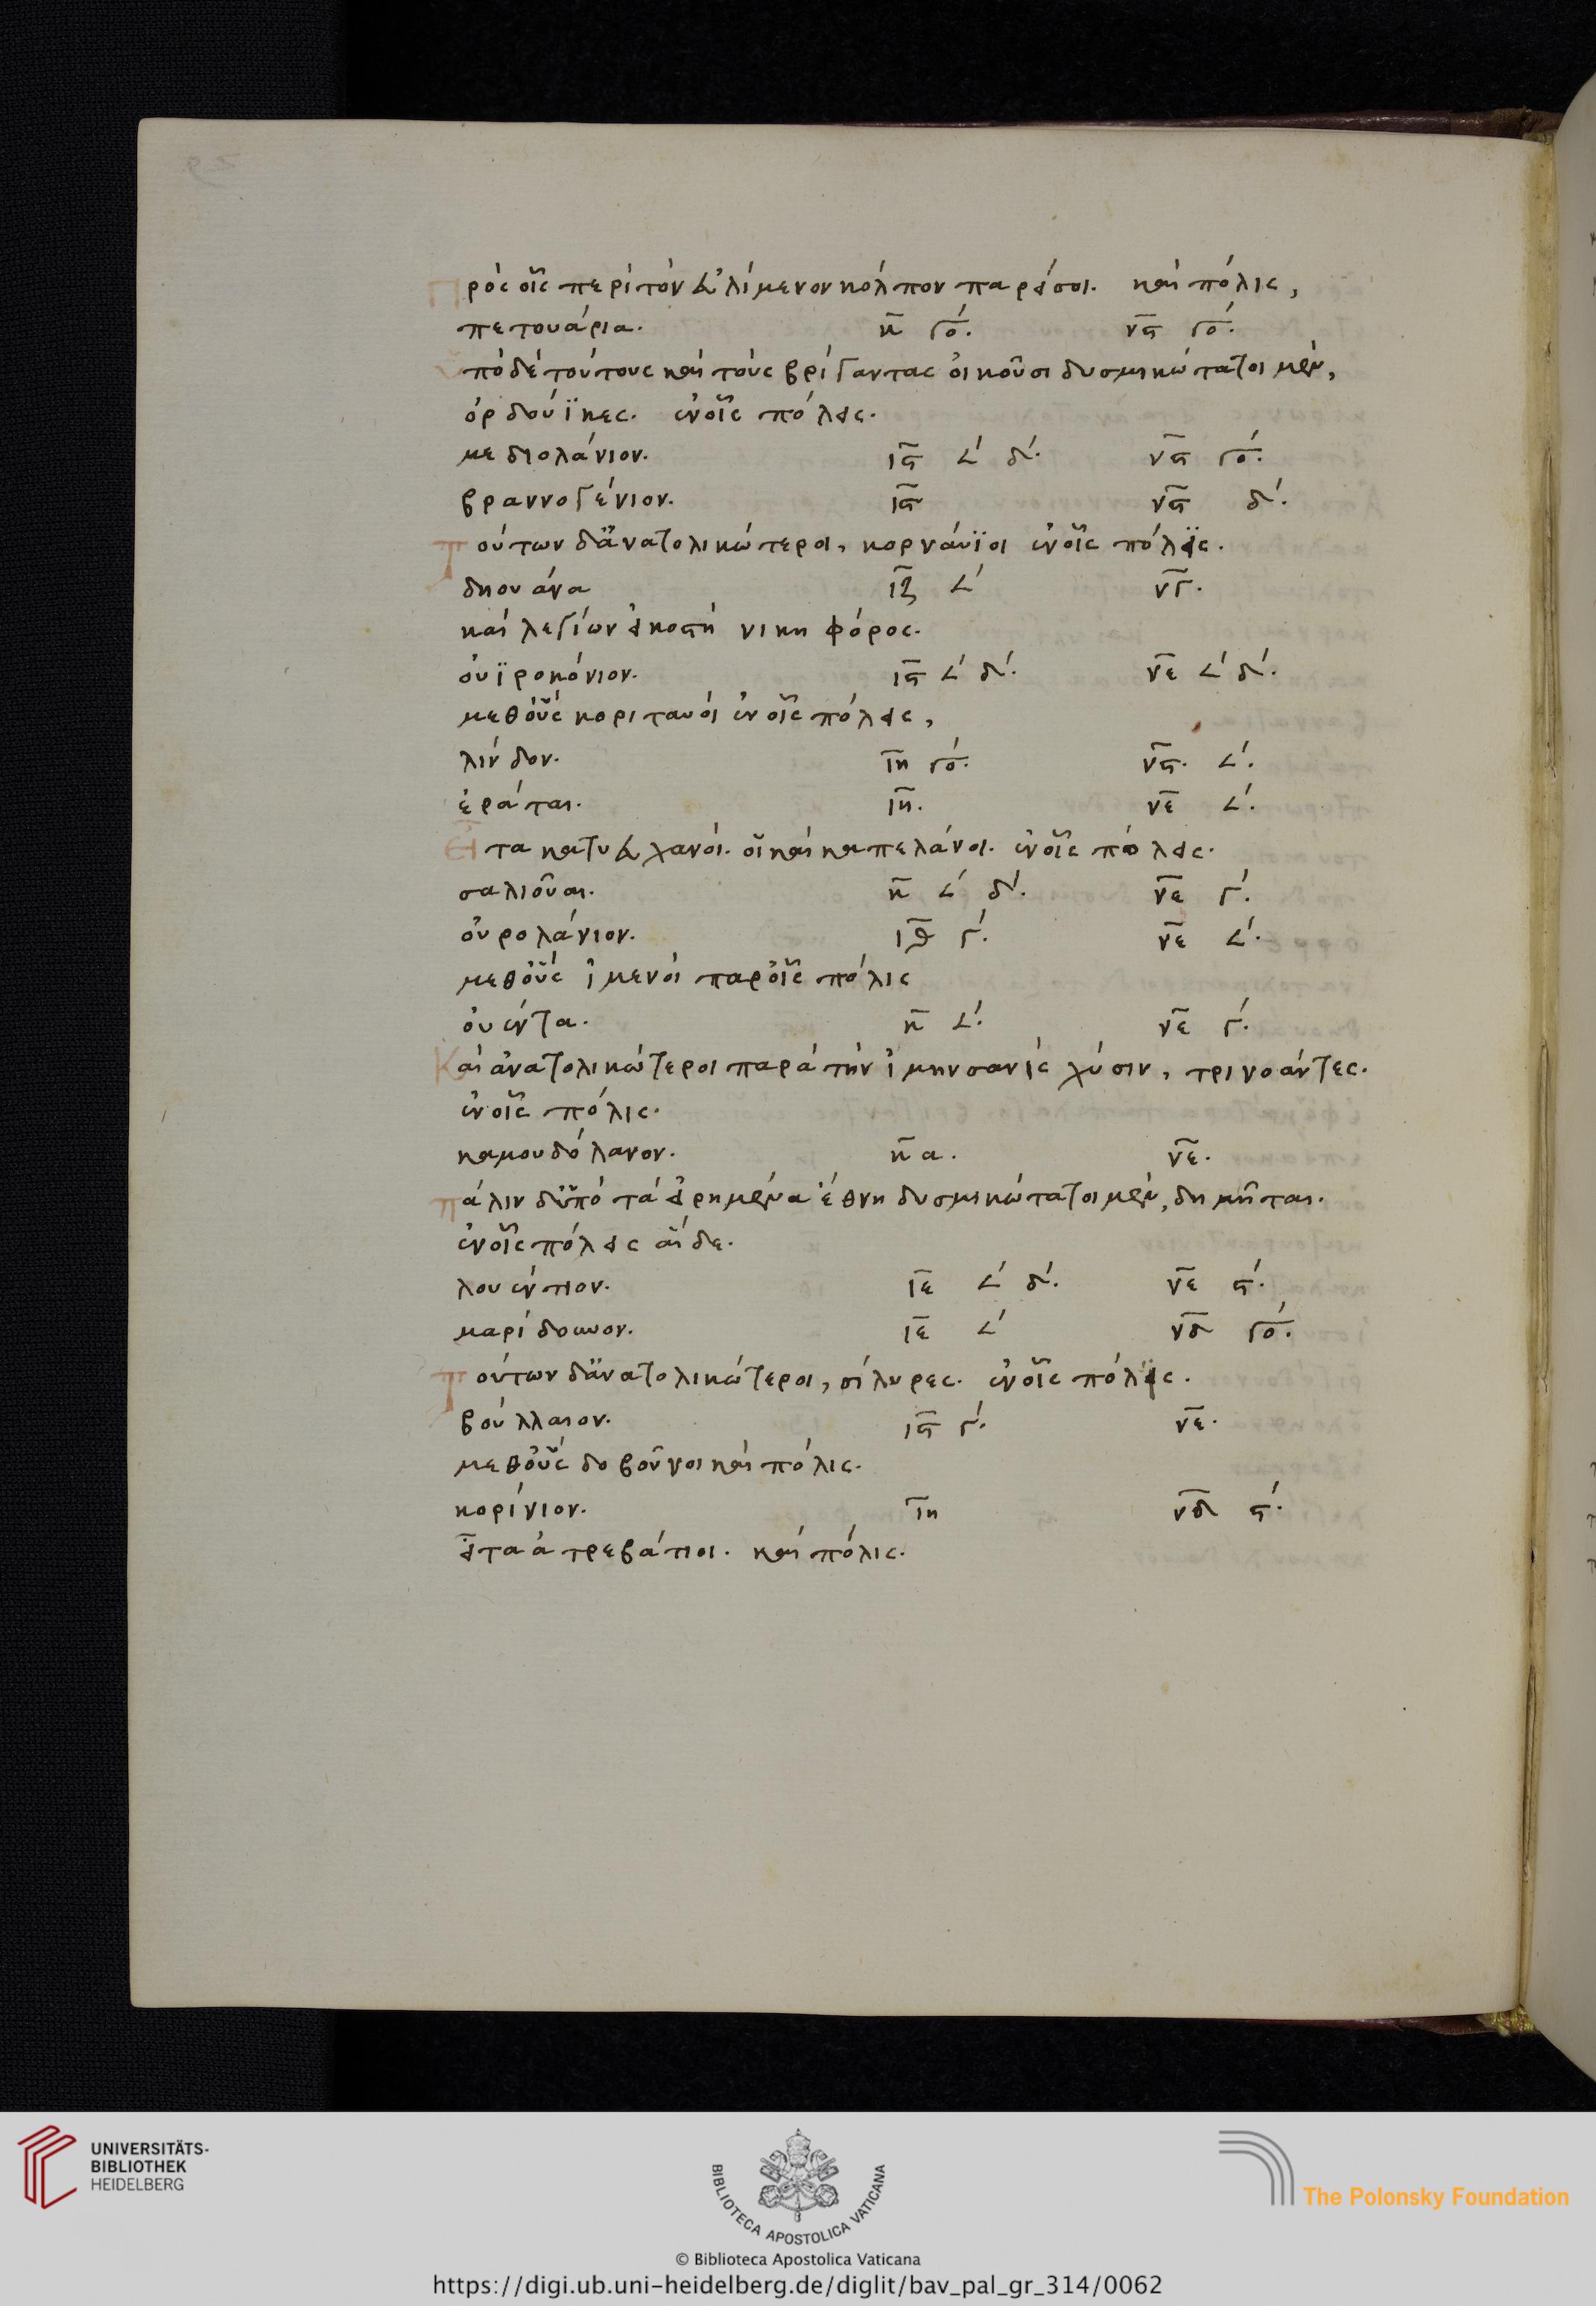 Πρὸς οἷς περὶ τὸν εὐλίμενον κόλπον παρείσοι. καὶ πόλις,
πετουάρια. κ̅ γο΄. νϛ̅ γο΄.
Ὑπὸ δὲ τούτους καὶ τοὺς βρίγαντας οἰκοῦσι δυσμικώτατοι μὲν,
ὀρδούϊκες. ἐν οἷς πόλεις.
μεδιολάνιον. ιϛ̅ 𐅵΄ δ΄. νϛ̅ γο΄.
βραννογένιον. ιϛ̅ νϛ̅ δ΄.
Τούτων δ' ἀνατολικώτεροι, κορνάυϊοι ἐν οἷς πόλεις.
δηουάνα ιζ̅ 𐅵΄ νγ̅.
καὶ λεγίων εἰκοστὴ νικηφόρος.
οὐϊροκόνιον. ιϛ̅ 𐅵΄ δ΄. νε̅ 𐅵΄ δ΄.
μεθ' οὓς κοριταυοί ἐν οἷς πόλεις,
λίνδον. ιη̅ γο΄. νϛ̅. 𐅵΄.
ἐράται. ιη̅. νε̅ 𐅵΄.
Εἶτα κατυευχανοί. οἳ καὶ καπελάνοι. ἐν οἷς πόλεις.
σαλιοῦαι. κ̅ 𐅵΄ δ΄. νε̅ γ΄.
οὐρολάνιον. ιθ̅ γ΄. νε̅ 𐅵΄.
μεθ' οὓς ἰμενοί παρ' οἷς πόλις
οὐέντα. κ̅ 𐅵΄. νε̅ γ΄.
Καὶ ἀνατολικώτεροι παρὰ τὴν ἰμηνσανὶς χύσιν, τρινοάντες.
ἐν οἷς πόλις.
καμουδόλανον. κ̅α. νε̅.
πάλιν δ' ὑπὸ τὰ εἰρημένα ἔθνη δυσμικώτατοι μὲν, δημῆται.
ἐν οἷς πόλεις αἵδε.
λουέντιον. ιε̅ 𐅵΄ δ΄. νε̅ ϛ΄.
μαρίδουνον. ιε̅ 𐅵΄ νδ̅ γο΄.
Τούτων δ' ἀνατολικώτεροι, σίλυρες. ἐν οἷς πόλεις.
βούλλαιον. ιϛ̅ γ΄. νε̅.
μεθ' οὓς δοβοῦνοι καὶ πόλις.
κορίνιον. ιη̅ νδ̅ ϛ΄.
εἶτα ἀτρεβάτιοι. καὶ πόλις.
UNIVERSITÄTS-
BIBLIOTHEK
HEIDELBERG
BIBLIOTECA APOSTOLICA VATICANA
The Polonsky Foundation
© Biblioteca Apostolica Vaticana
https://digi.ub.uni-heidelberg.de/diglit/bav_pal_gr_314/0062